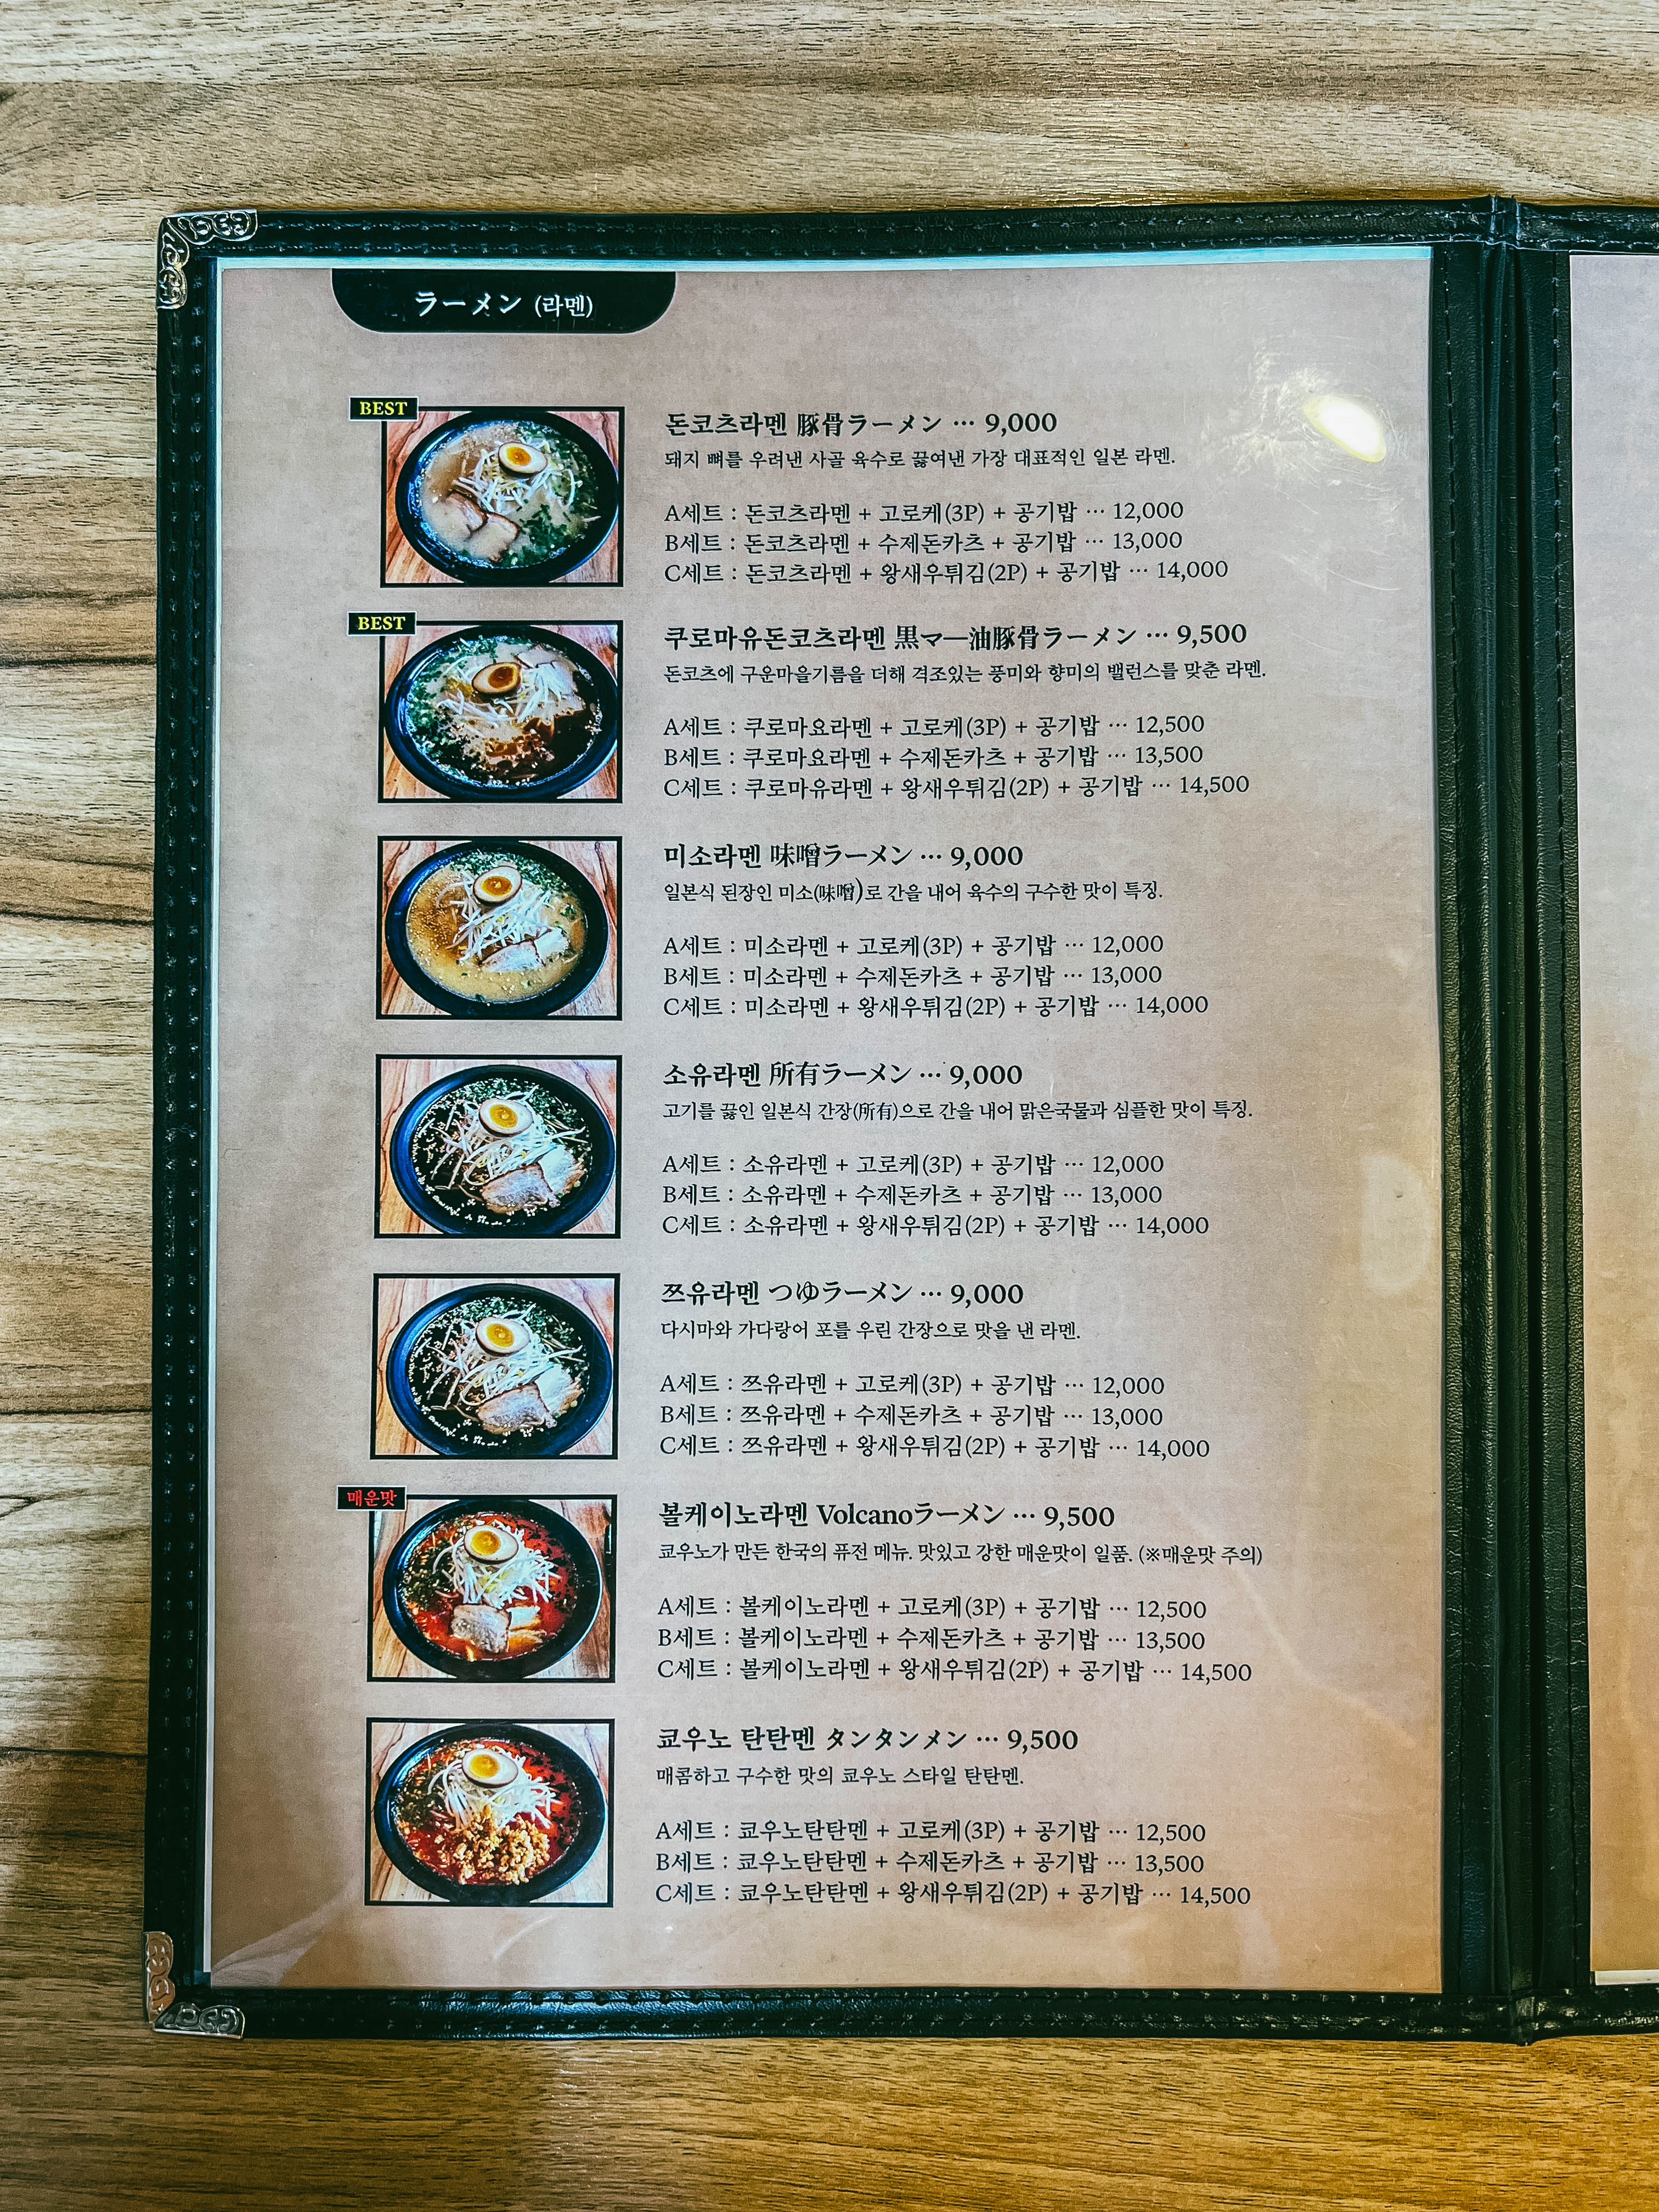 ラーメン (라멘)
BEST
돈코츠라멘 豚骨ラーメン ··· 9,000
돼지 뼈를 우려낸 사골 육수로 끓여낸 가장 대표적인 일본 라멘.
A세트 : 돈코츠라멘 + 고로케(3P) + 공기밥 ··· 12,000
B세트 : 돈코츠라멘 + 수제돈카츠 + 공기밥 ··· 13,000
C세트 : 돈코츠라멘 + 왕새우튀김(2P) + 공기밥 ··· 14,000
BEST
쿠로마유돈코츠라멘 黒マ—油豚骨ラーメン ··· 9,500
돈코츠에 구운마을기름을 더해 격조있는 풍미와 향미의 밸런스를 맞춘 라멘.
A세트 : 쿠로마요라멘 + 고로케(3P) + 공기밥 ··· 12,500
B세트 : 쿠로마요라멘 + 수제돈카츠 + 공기밥 ··· 13,500
C세트 : 쿠로마유라멘 + 왕새우튀김(2P) + 공기밥 ··· 14,500
미소라멘 味噌ラーメン ··· 9,000
일본식 된장인 미소(味噌)로 간을 내어 육수의 구수한 맛이 특징.
A세트 : 미소라멘 + 고로케(3P) + 공기밥 ··· 12,000
B세트 : 미소라멘 + 수제돈카츠 + 공기밥 ··· 13,000
C세트 : 미소라멘 + 왕새우튀김(2P) + 공기밥 ··· 14,000
소유라멘 所有ラーメン ··· 9,000
고기를 끓인 일본식 간장(所有)으로 간을 내어 맑은국물과 심플한 맛이 특징.
A세트 : 소유라멘 + 고로케(3P) + 공기밥 ··· 12,000
B세트 : 소유라멘 + 수제돈카츠 + 공기밥 ··· 13,000
C세트 : 소유라멘 + 왕새우튀김(2P) + 공기밥 ··· 14,000
쯔유라멘 つゆラーメン ··· 9,000
다시마와 가다랑어 포를 우린 간장으로 맛을 낸 라멘.
A세트 : 쯔유라멘 + 고로케(3P) + 공기밥 ··· 12,000
B세트 : 쯔유라멘 + 수제돈카츠 + 공기밥 ··· 13,000
C세트 : 쯔유라멘 + 왕새우튀김(2P) + 공기밥 ··· 14,000
매운맛
볼케이노라멘 Volcanoラーメン ··· 9,500
쿄우노가 만든 한국의 퓨전 메뉴. 맛있고 강한 매운맛이 일품. (※매운맛 주의)
A세트 : 볼케이노라멘 + 고로케(3P) + 공기밥 ··· 12,500
B세트 : 볼케이노라멘 + 수제돈카츠 + 공기밥 ··· 13,500
C세트 : 볼케이노라멘 + 왕새우튀김(2P) + 공기밥 ··· 14,500
쿄우노 탄탄멘 タンタンメン ··· 9,500
매콤하고 구수한 맛의 쿄우노 스타일 탄탄멘.
A세트 : 쿄우노탄탄멘 + 고로케(3P) + 공기밥 ··· 12,500
B세트 : 쿄우노탄탄멘 + 수제돈카츠 + 공기밥 ··· 13,500
C세트 : 쿄우노탄탄멘 + 왕새우튀김(2P) + 공기밥 ··· 14,500